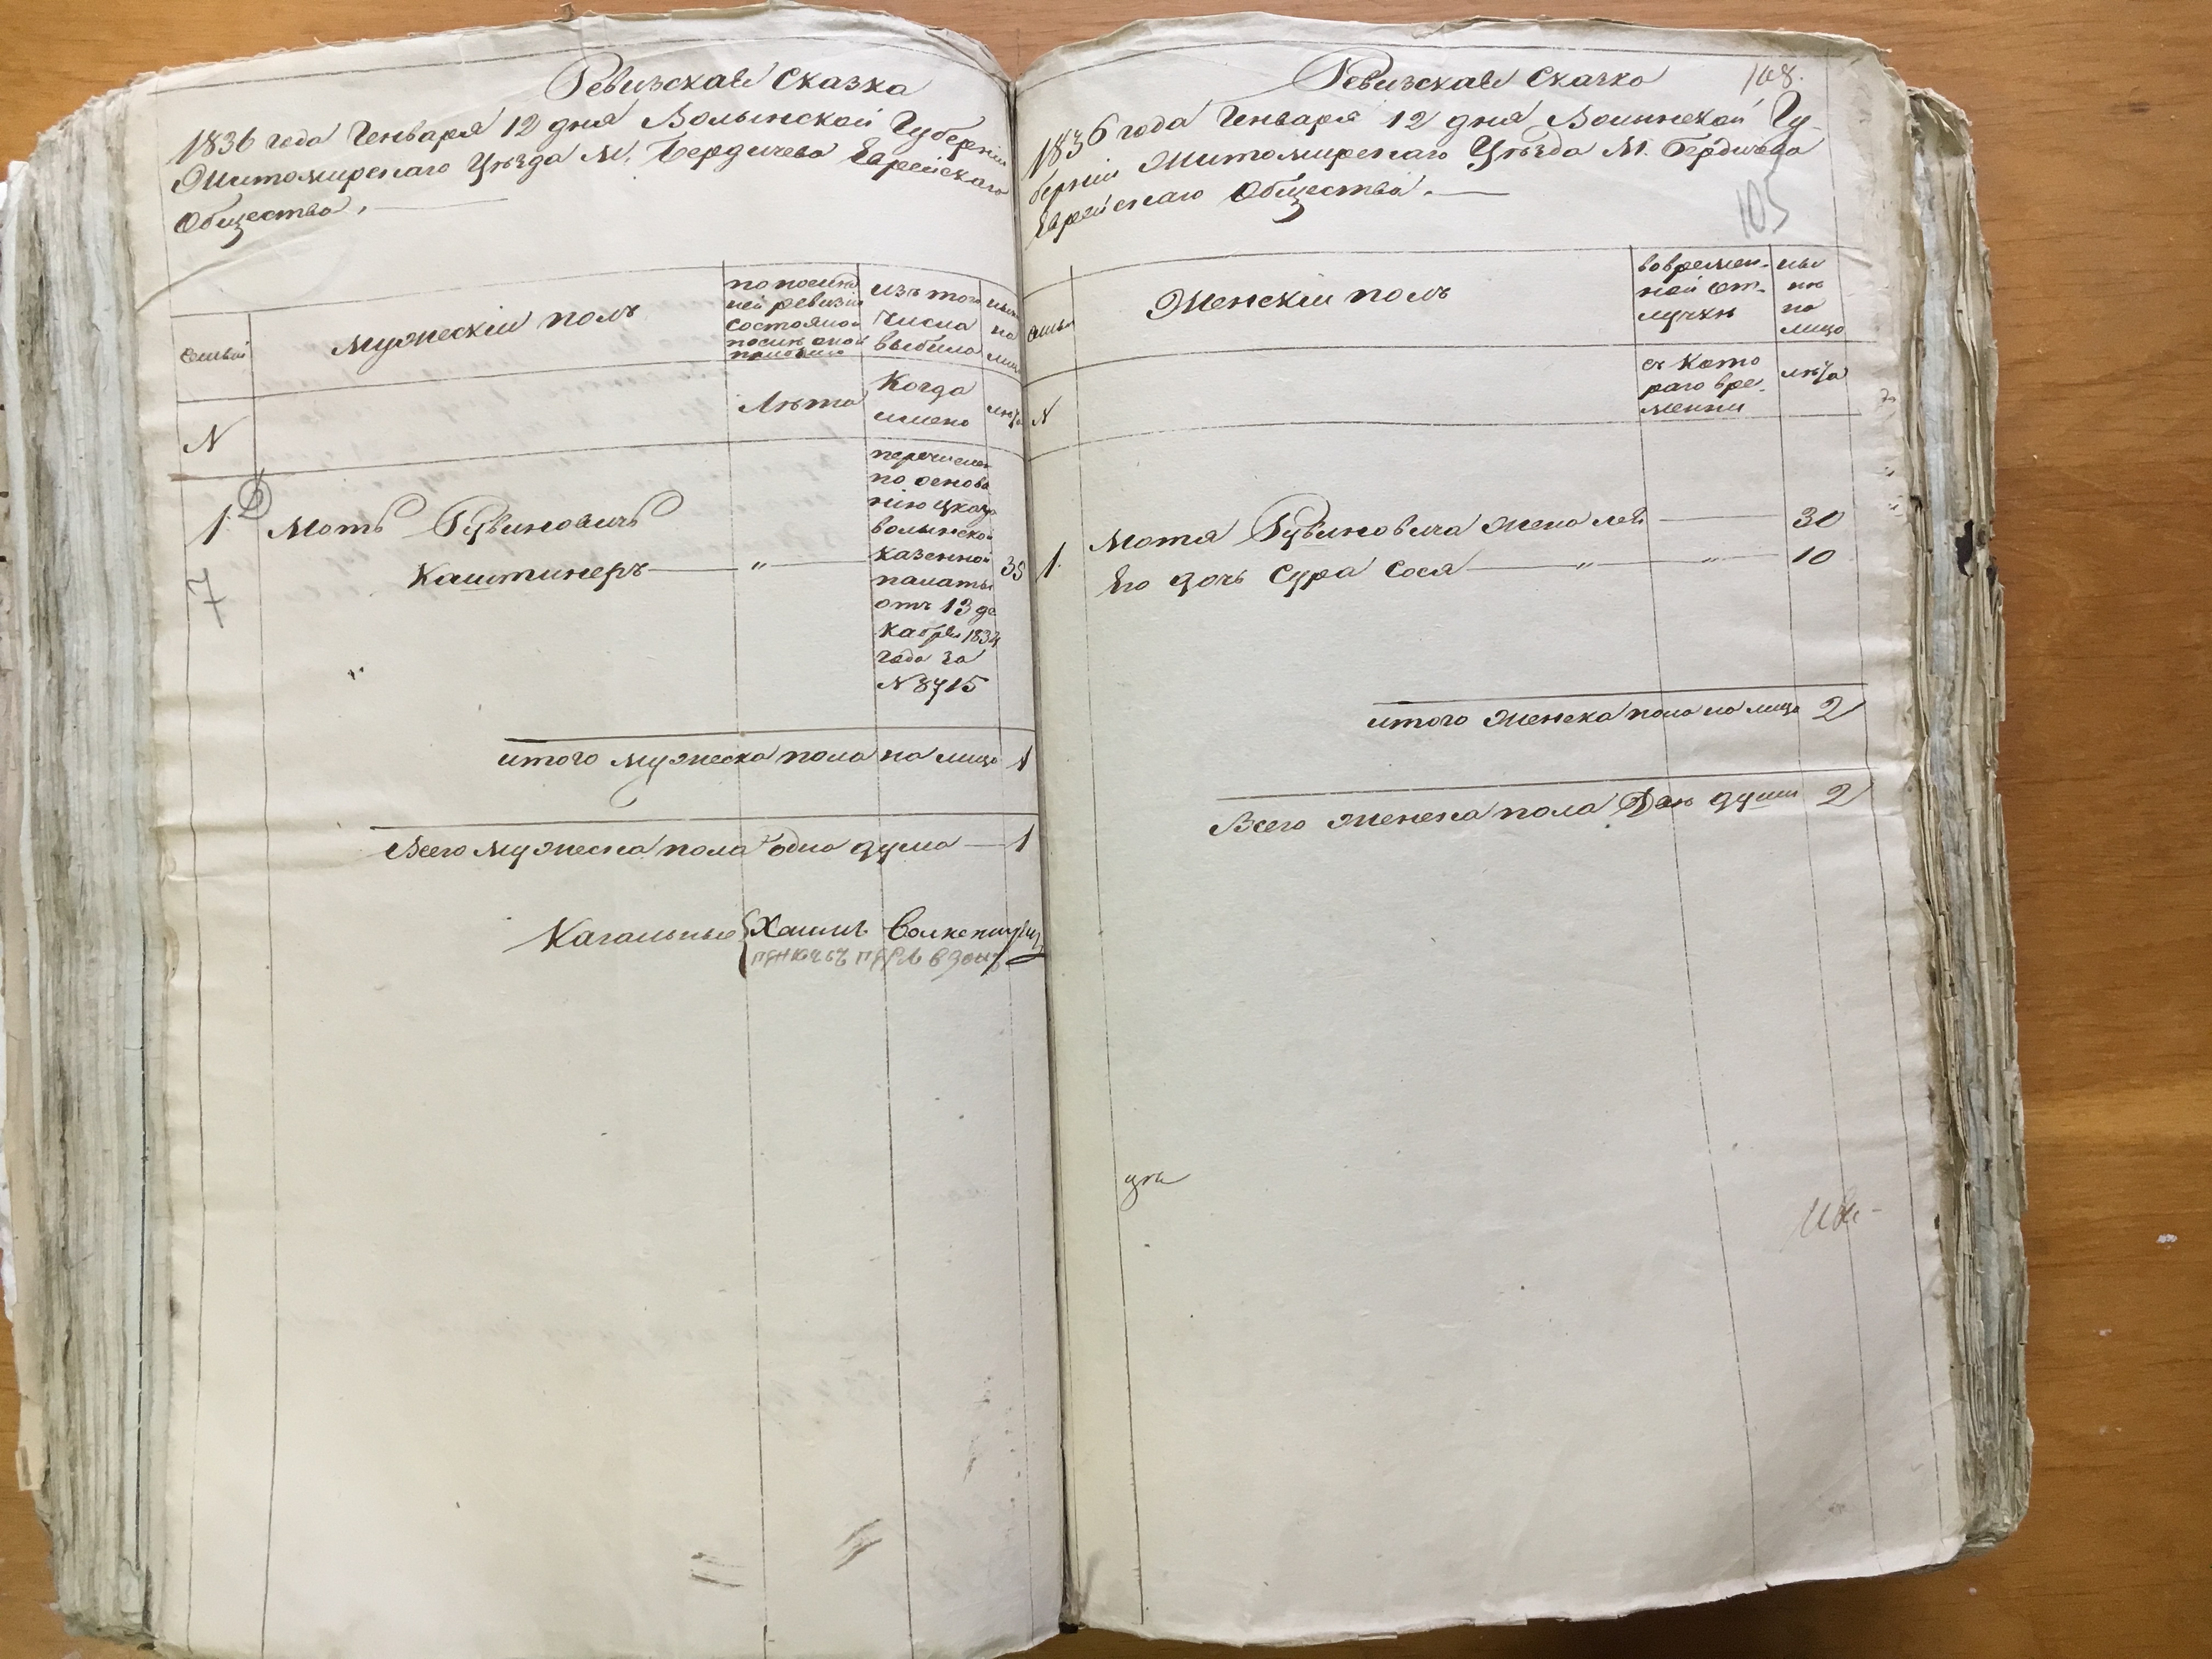 Ревизская Сказка
1836 года Генваря 12 дня Волынской Губерніи
Житомирскаго Уѣзда М. Бердичева Еврейскаго
Общества.
семьи
мужескій полъ
по послѣд
ней ревизіи
состояло и
послѣ оной
прибыло
изъ того
числа
выбыло
ныне
на
лицо
N
Лѣта
Когда
имено
лѣта
1
Моть Рувиновичъ
Каштинеръ — „ — 35
7
перечислен
по основа
нію указа
волынской
казенной
палаты
отъ 13 де
кабря 1834
года за
N 8715
итого мужеска пола на лицо 1
Всего мужеска пола одна душа — 1
Кагальные
Ревизская Сказка
108.
1836 года Генваря 12 дня Волинской Гу-
берніи Житомирскаго Уѣзда М. Бердичева
Еврейскаго Общества.
105
семьи
Женскій полъ
во времен-
ной от-
лучкѣ
ны
нѣ
на
лицо
N
съ Кото
раго вре-
менни
лѣта
1. Мотя Рувиновича жена лея — 30
Его дочь Сура Сося — „ — „ — 10
итого женска пола на лицо 2
Всего женска пола Двѣ души 2